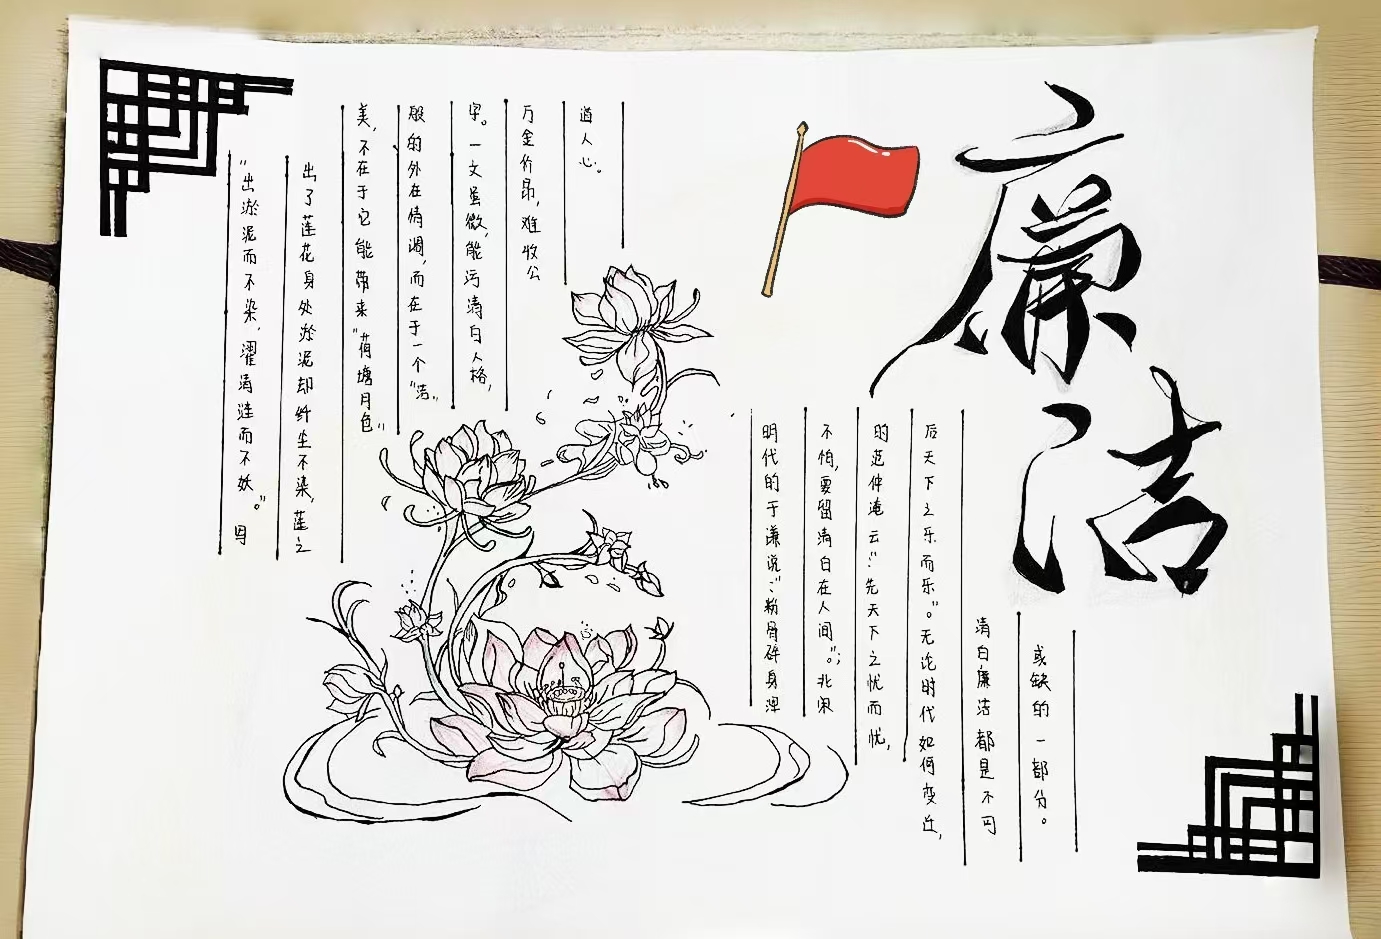 廉洁
"出淤泥而不染,濯清涟而不妖。"写
出了莲花身处淤泥却纤尘不染,莲之
美,不在于它能带来"荷塘月色"
般的外在情调,而在于一个"洁"
字。一文虽微,能污清白人格,
万金价昂,难收公
道人心。
明代的于谦说:"粉骨碎身浑
不怕,要留清白在人间"。;北宋
的范仲淹云:"先天下之忧而忧,
后天下之乐而乐"。无论时代如何变迁,
清白廉洁都是不可
或缺的一部分。